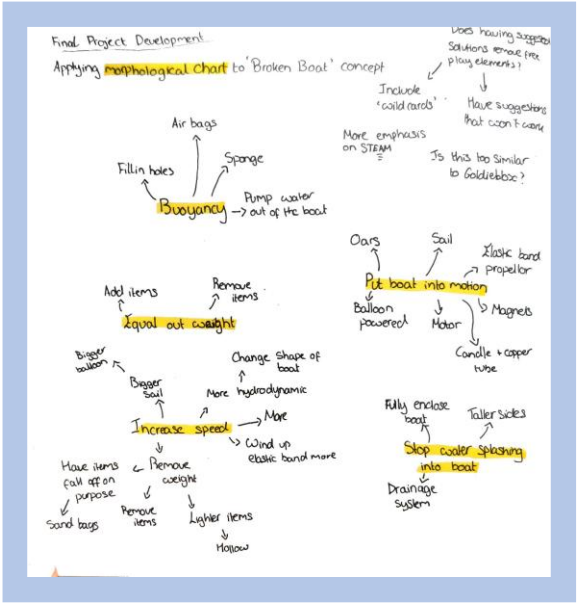 Final Project Development
Applying morphological chart to 'Broken Boat' concept
Does having suggested
solutions remove free
play elements?
Include
'wild cards'
Have suggestions
that won't work
More emphasis
on STEAM
Is this too similar
to Goldiebbox?
Air bags
Fill in holes
Sponge
Buoyancy
Pump water
out of the boat
Oars
Sail
Elastic band
propellor
Put boat into motion
Balloon
powered
Motor
Magnets
Candle + copper
tube
Add items
Remove
items
Equal out weight
Bigger
balloon
Bigger
sail
Change shape of
boat
More hydrodynamic
Increase speed
More
Wind up
elastic band more
Have items
fall off on
purpose
Remove
weight
Sand bags
Remove
items
Lighter items
Hollow
Fully enclose
boat
Taller sides
Stop water splashing
into boat
Drainage
system